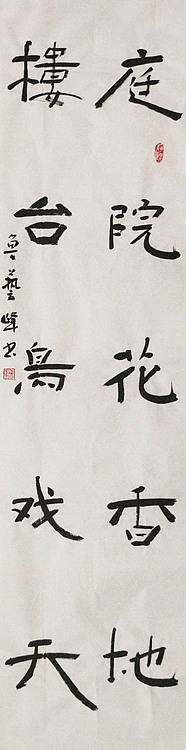 庭院花香地
樓台鳥戏天
魯藝峰书